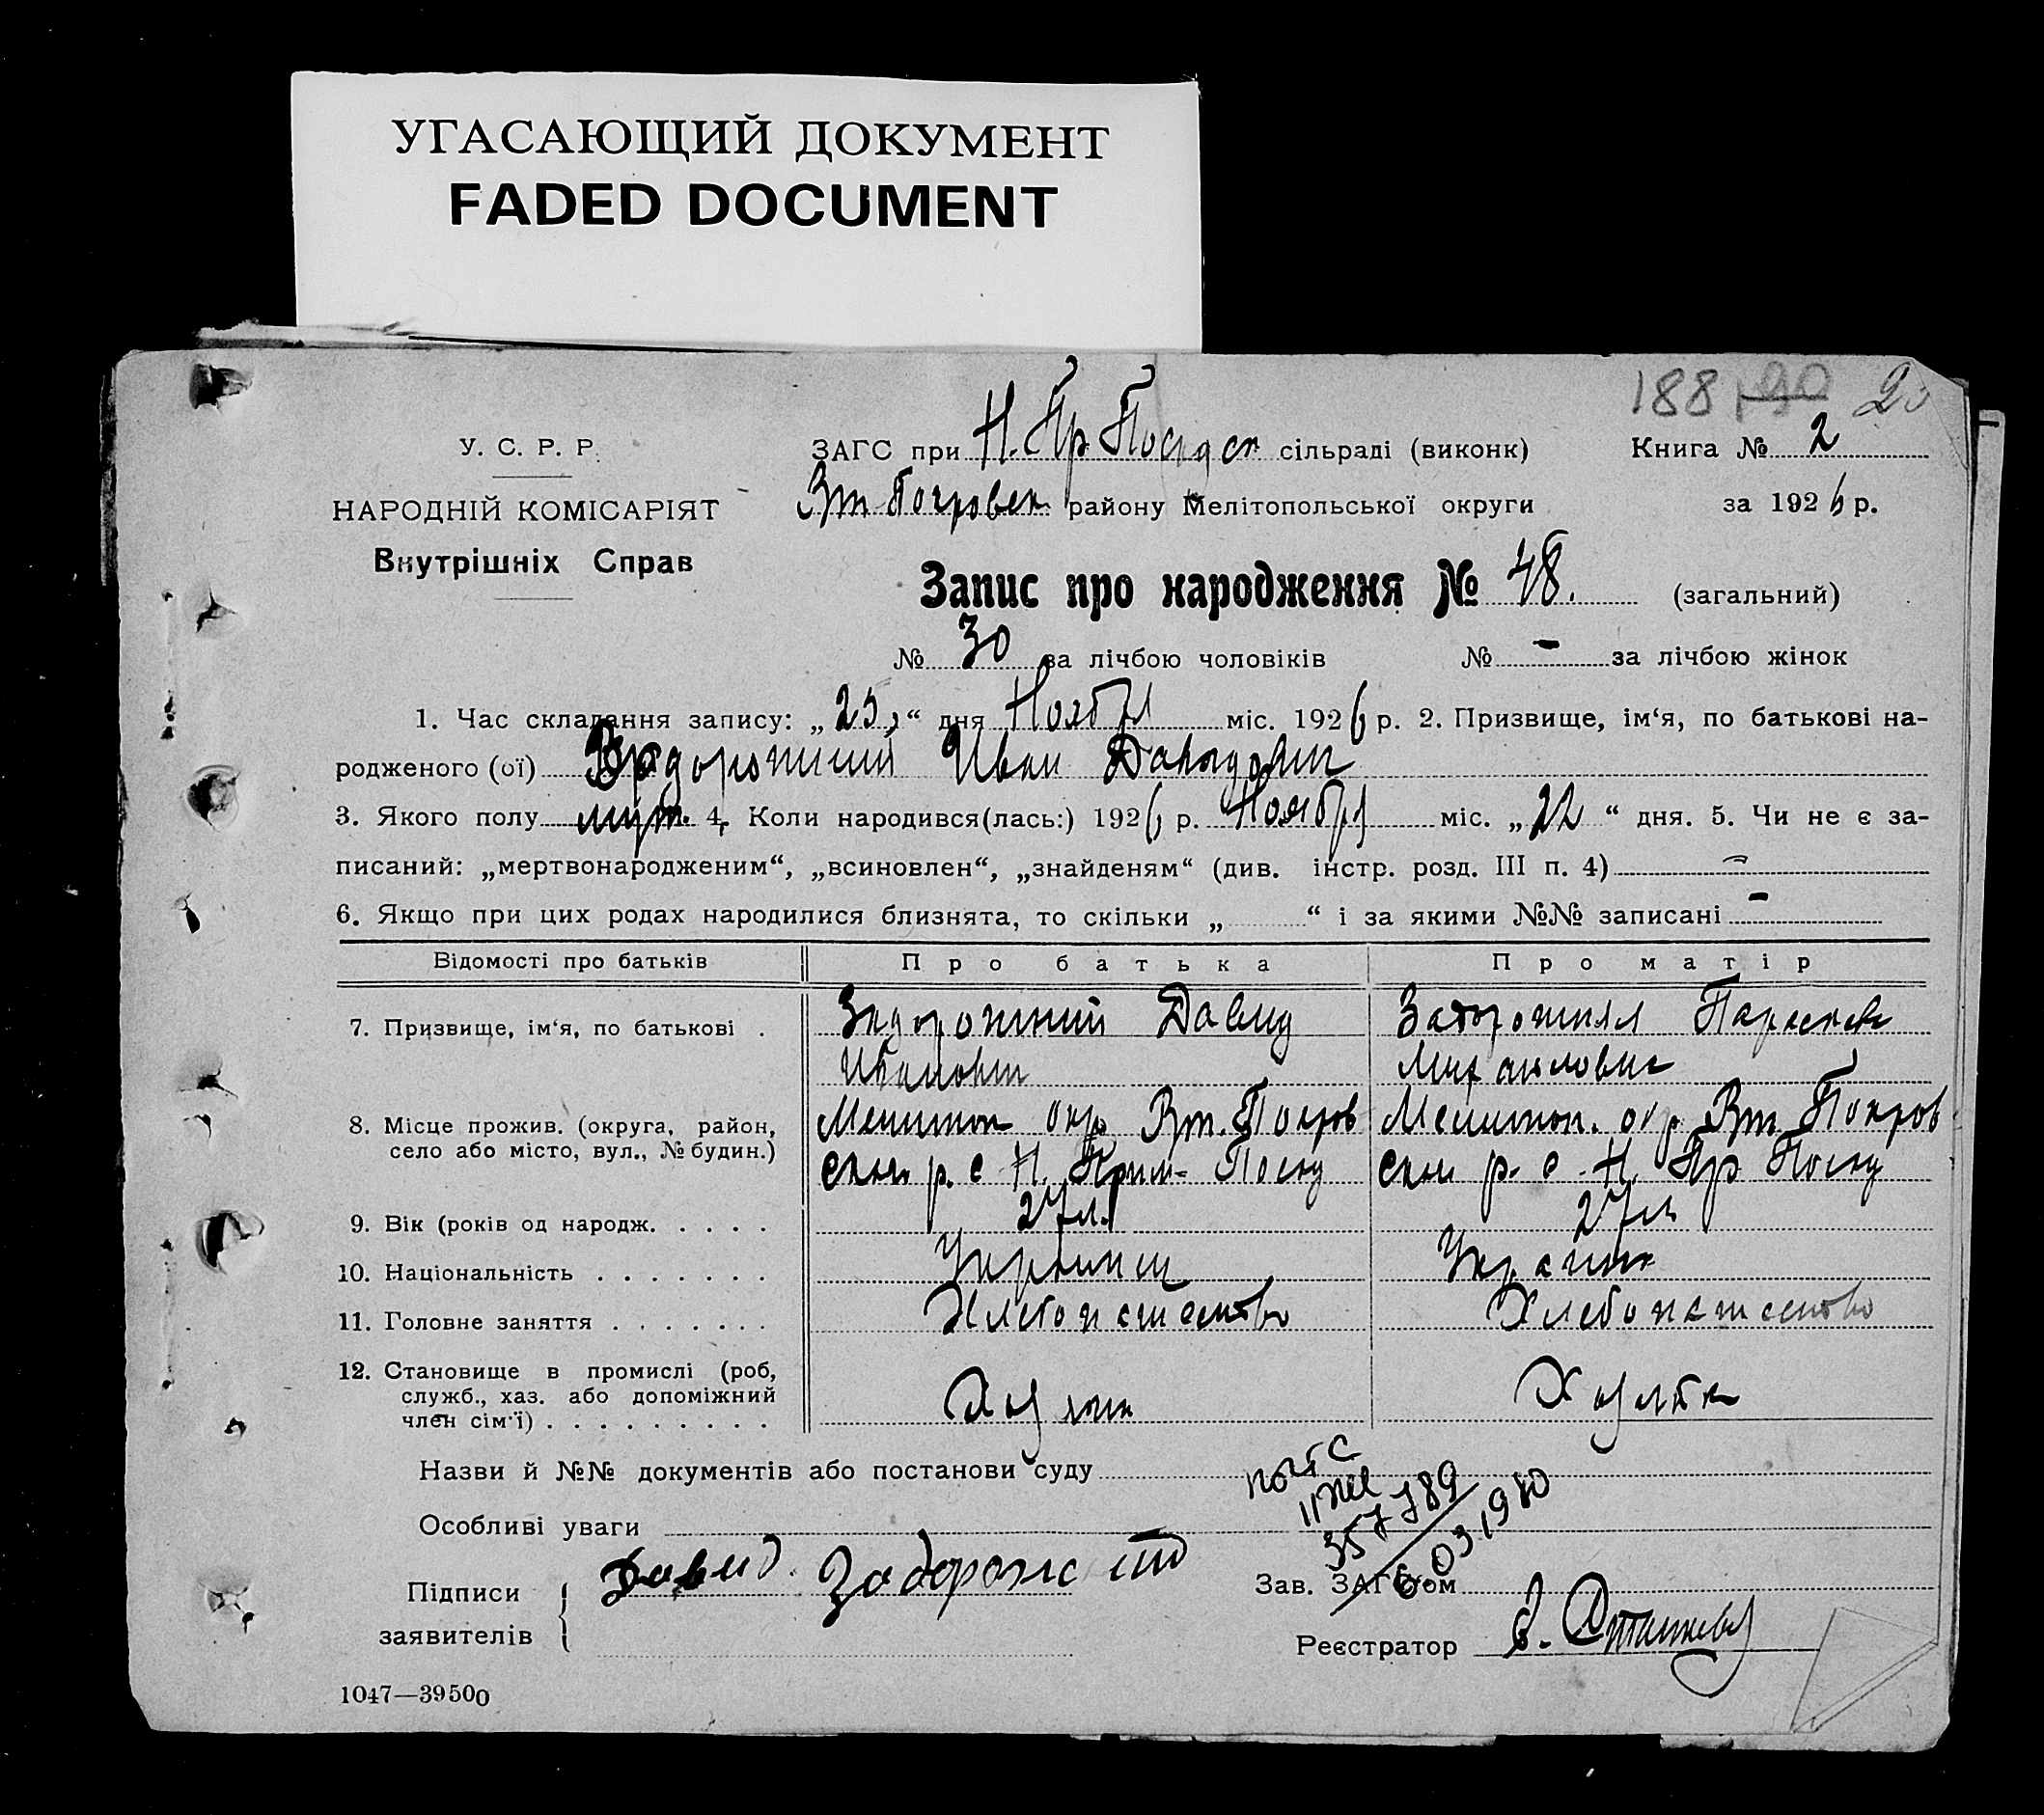 УГАСАЮЩИЙ ДОКУМЕНТ
FADED DOCUMENT
188 90
У. С. Р. Р.
НАРОДНІЙ КОМІСАРІЯТ
Внутрішніх Справ
ЗАГС при Н. Пр. сільраді (виконк)
Книга № 2
району Мелітопольської округи
за 1926 р.
Запис про народження № 48. (загальний)
№ 30 за лічбою чоловіків № - за лічбою жінок
1. Час складання запису: „25“ дня Ноября міс. 1926 р. 2. Призвище, ім‘я, по батькові на-
родженого (ої) Задорожний Иван Давидович
3. Якого полу муж. 4. Коли народився(лась:) 1926 р. Ноября міс. „22“ дня. 5. Чи не є за-
писаний: „мертвонародженим“, „всиновлен“, „знайденям“ (див. інстр. розд. III п. 4) -
6. Якщо при цих родах народилися близнята, то скільки „ “ і за якими №№ записані -
Відомості про батьків Про батька Про матір
7. Призвище, ім‘я, по батькові . Задорожний Давид Задорожная
8. Місце прожив. (округа, район, село або місто, вул., № будин.)
Мелитоп окр. Вт. Покров Мелитоп. окр. Вт. Покров
ском р. с Н. ском р. с Н. Пр
9. Вік (років од народж. . . . . 27 л. 27 л
10. Національність . . . . . . . Украинец
11. Головне заняття . . . . . . . Хлебопашество Хлебопашество
12. Становище в промислі (роб, служб., хаз. або допоміжний член сім‘ї) . . . . . . . . .
Назви й №№ документів або постанови суду
Особливі уваги
357789
03.1980
Підписи
заявителів
Давид Задорожний
Зав. ЗАГС‘ом
Реєстратор
1047—39500